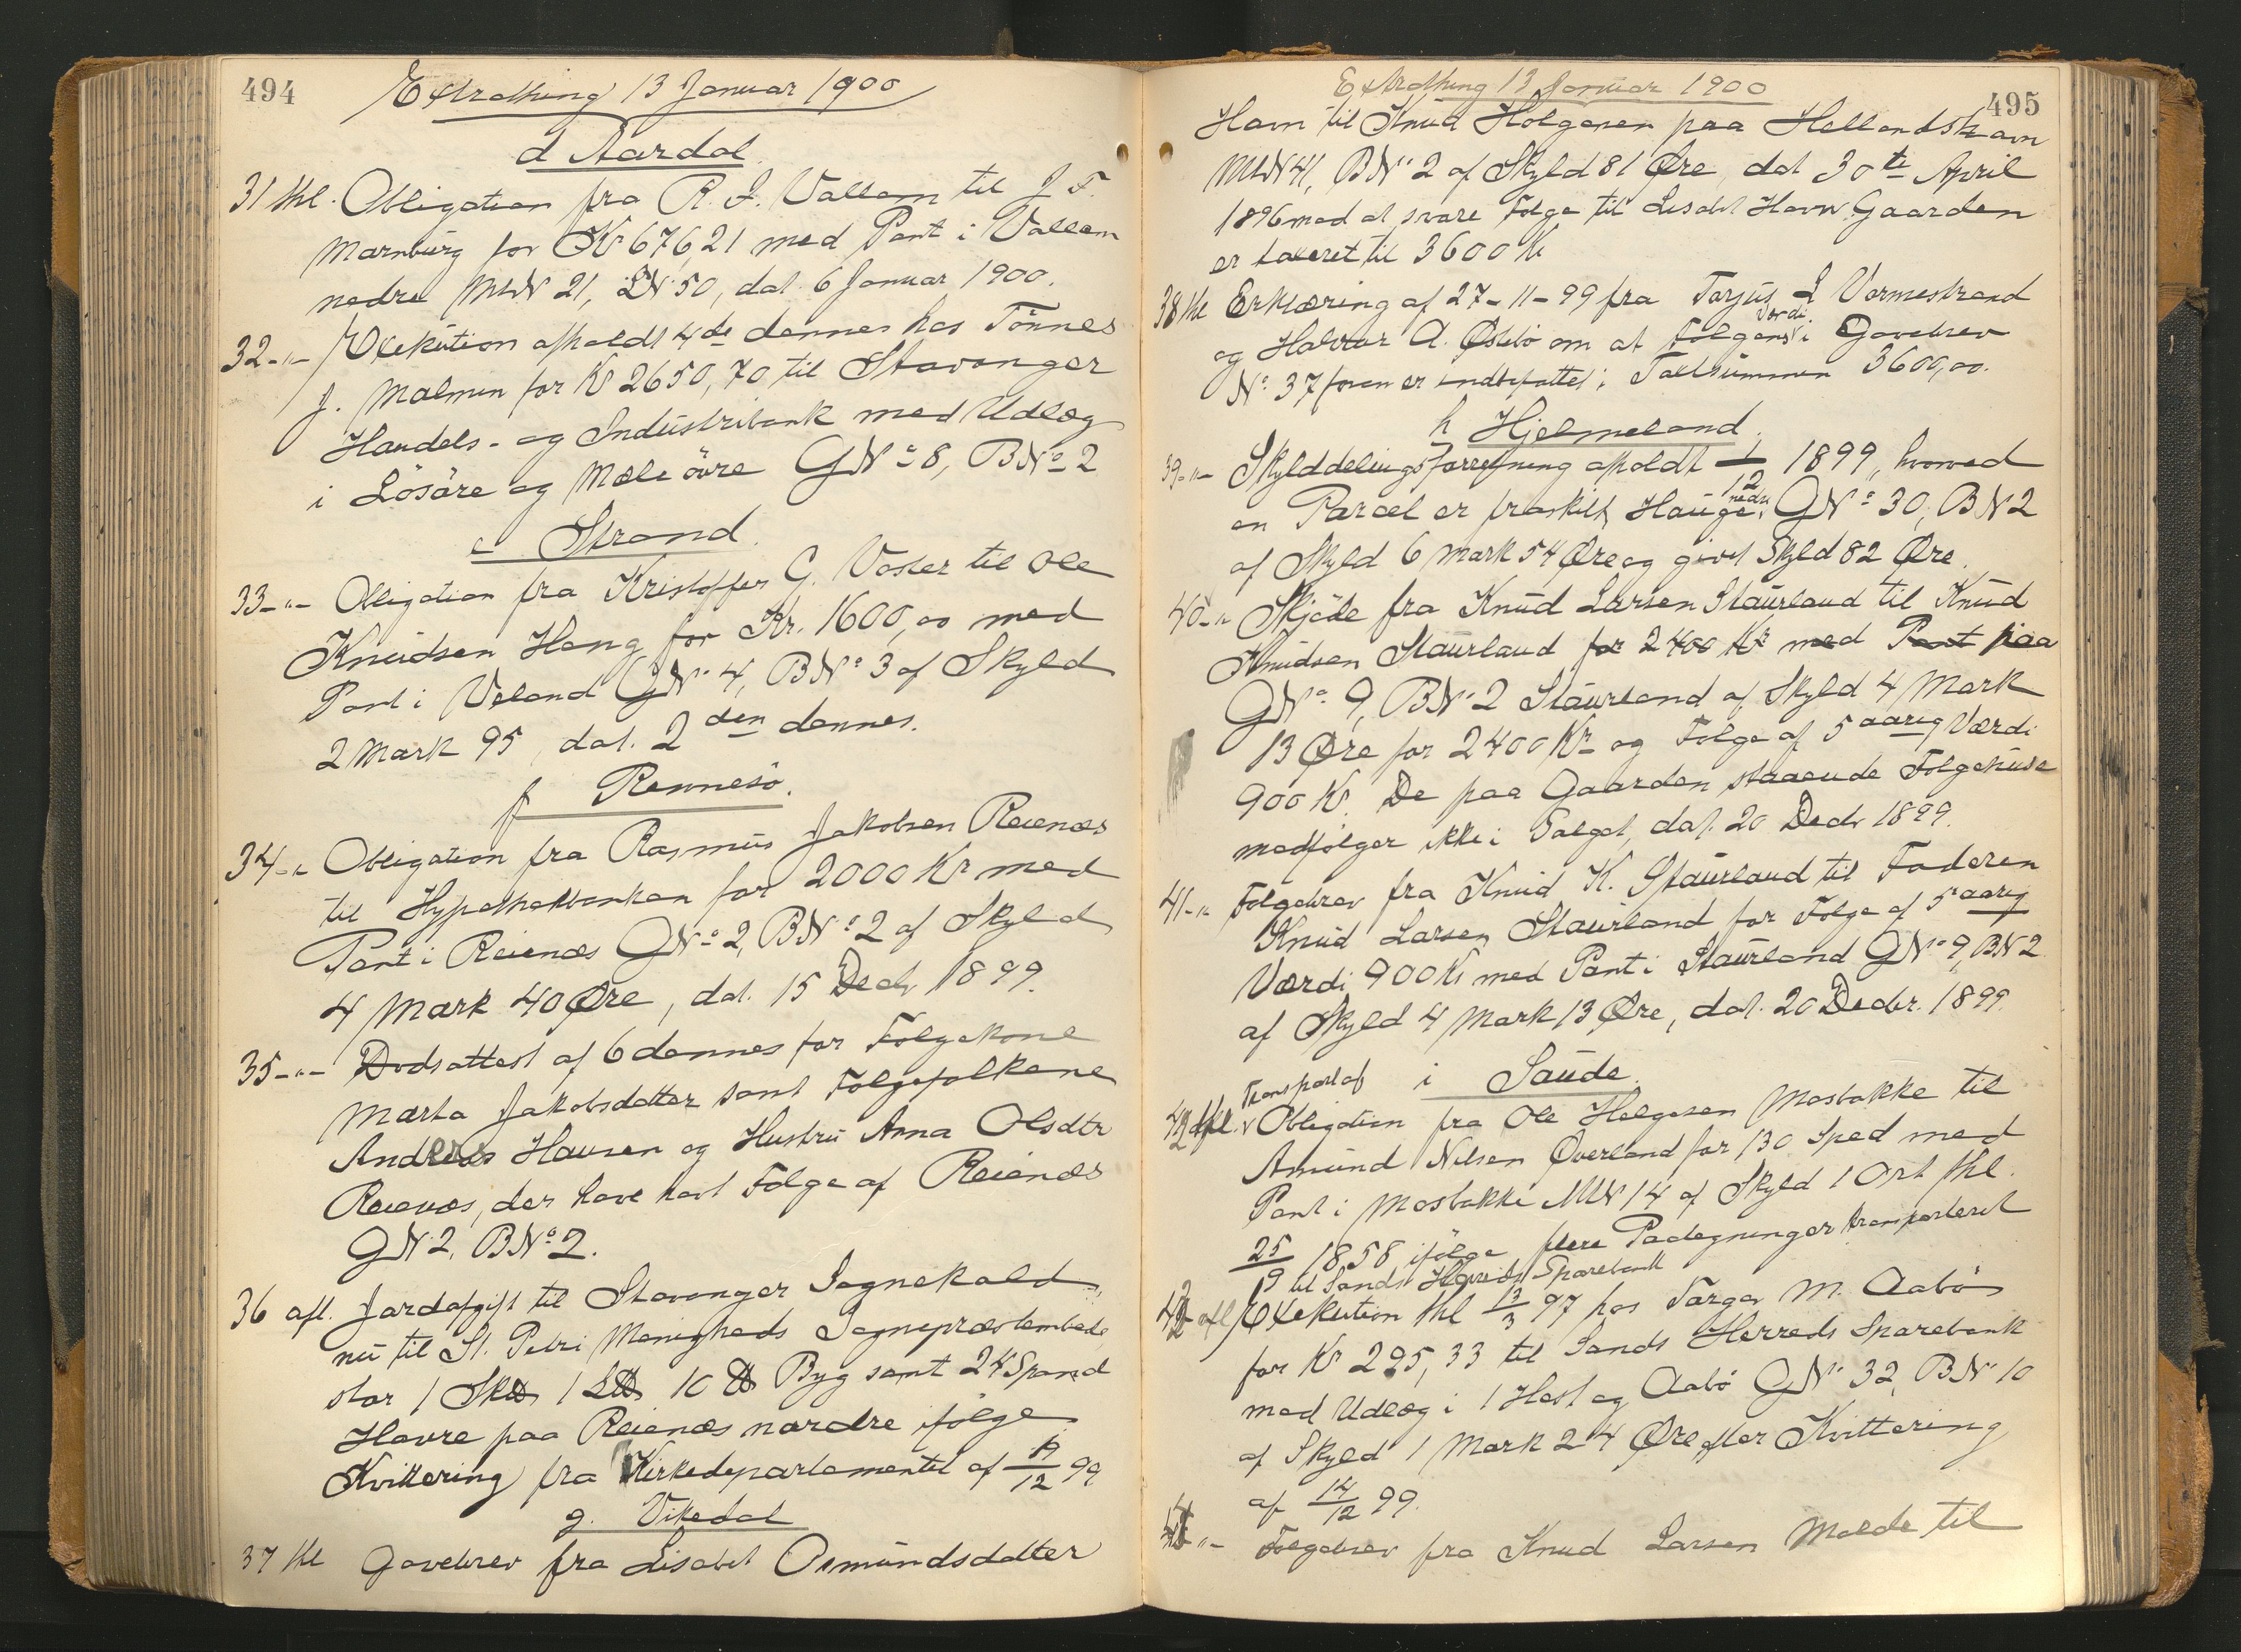 494
Extrathing 13 Januar 1900
d Aardal.
31 thl. Obligation fra R. I. Vallem til J. F.
Marnburg for Kr 676,21 med Pant i Vallem
nedre MtrN 21, LN. 50, dat. 6 Januar 1900.
32-"- Exekution afholdt 4de dennes hos Tönnes
J. Malmin for Kr 2650,70 til Stavanger
Handels- og Industribank med Udlæg
i Lösöre og Mæle övre GNo 8, BNo 2
e Strand.
33-"- Obligation fra Kristoffer G. Voster til Ole
Knudsen Heng for Kr. 1600,00 med
Pant i Veland GNo 4, BNo 3 af Skyld
2 Mark 95, dat. 2den dennes.
f Rennesö.
34-"- Obligation fra Rasmus Jakobsen Reienæs
til Hypothekbanken for 2000 Kr med
Pant i Reienæs GNo 2, BNo 2 af Skyld
4 Mark 40 Øre, dat. 15 Decbr 1899.
35-"- Dödsattest af 6 dennes for Følgekone
Marta Jakobsdatter samt Følgefolkene
Andreas Hansen og Hustru Anna Olsdtr
Reienæs, der have havt Følge af Reienæs
GN 2, BNo 2.
36 afl. Jordafgift til Stavanger Sognekald,
nu til St. Petri Menigheds Sognepræstembede
stor 1 Sk℔ 1 L℔ 10 ℔ Byg samt 24 Spand
Havre paa Reienæs nordre ifölge
Kvittering fra Kirkedepartementet af /12 99
g. Vikedal
37 thl Gavebrev fra Lisabet Osmundsdatter
Extrathing 13 Januar 1900
495
Havn til Knud Holgersen paa Hellandshavn
MtrN 41, BNo 2 af Skyld 81 Øre, dat 30te April
1896 mod at svare Følge til Lisabet Havn. Gaarden
er taxeret til 3600 Kr
38 thl Erklæring af 27-11-99 fra Torjus L Vormestrand
og Halvor A. Østebö om at Følgens Værdi i Gavebrev
No. 37 foran er indbefattet i Taxtsummen 3600,00.
h Hjelmeland.
39-"- Skylddelingsforretning afholdt 1/12 1899, hvorved
en Parcel er fraskilt Hauge nedre GNo 30, BN 2
af Skyld 6 Mark 54 Øre og givet Skyld 82 Øre.
40-"- Skjöde fra Knud Larsen Staurland til Knud
Knudsen Staurland for 2400 Kr med Pant paa
GNo 9, BN 2 Staurland af Skyld 4 Mark
13 Øre for 2400 Kr og Følge af 5aarig Værdi
900 Kr. De paa Gaarden staaende Følgehuse
medfølger ikke i Salget, dat. 20 Decbr 1899.
41-"- Følgebrev fra Knud K. Staurland til Faderen
Knud Larsen Staurland for Følge af 5aarig
Værdi 900 Kr med Pant i Staurland GNo 9, BN 2
af Skyld 4 Mark 13 Øre, dat. 20 Decbr. 1899.
i Saude.
Transport af
42 Obligation fra Ole Helgesen Mosbakke til
Amund Nilsen Øverland for 130 Spd med
Pant i Mosbakke MN 14 af Skyld 1 Ort thl.
25/9 1858 ifölge flere Paategninger transporteret
til Sands Herreds Sparebank
43 afl Exekution thl 13/3 97 hos Torger M. Aabö
for Kr 295,33 til Sands Herreds Sparebank
med Udlæg i 1 Hest og Aabö GNo 32, BN 10
af Skyld 1 Mark 24 Øre efter Kvittering
af 14/12 99.
"- Følgebrev fra Knud Larsen Molde til